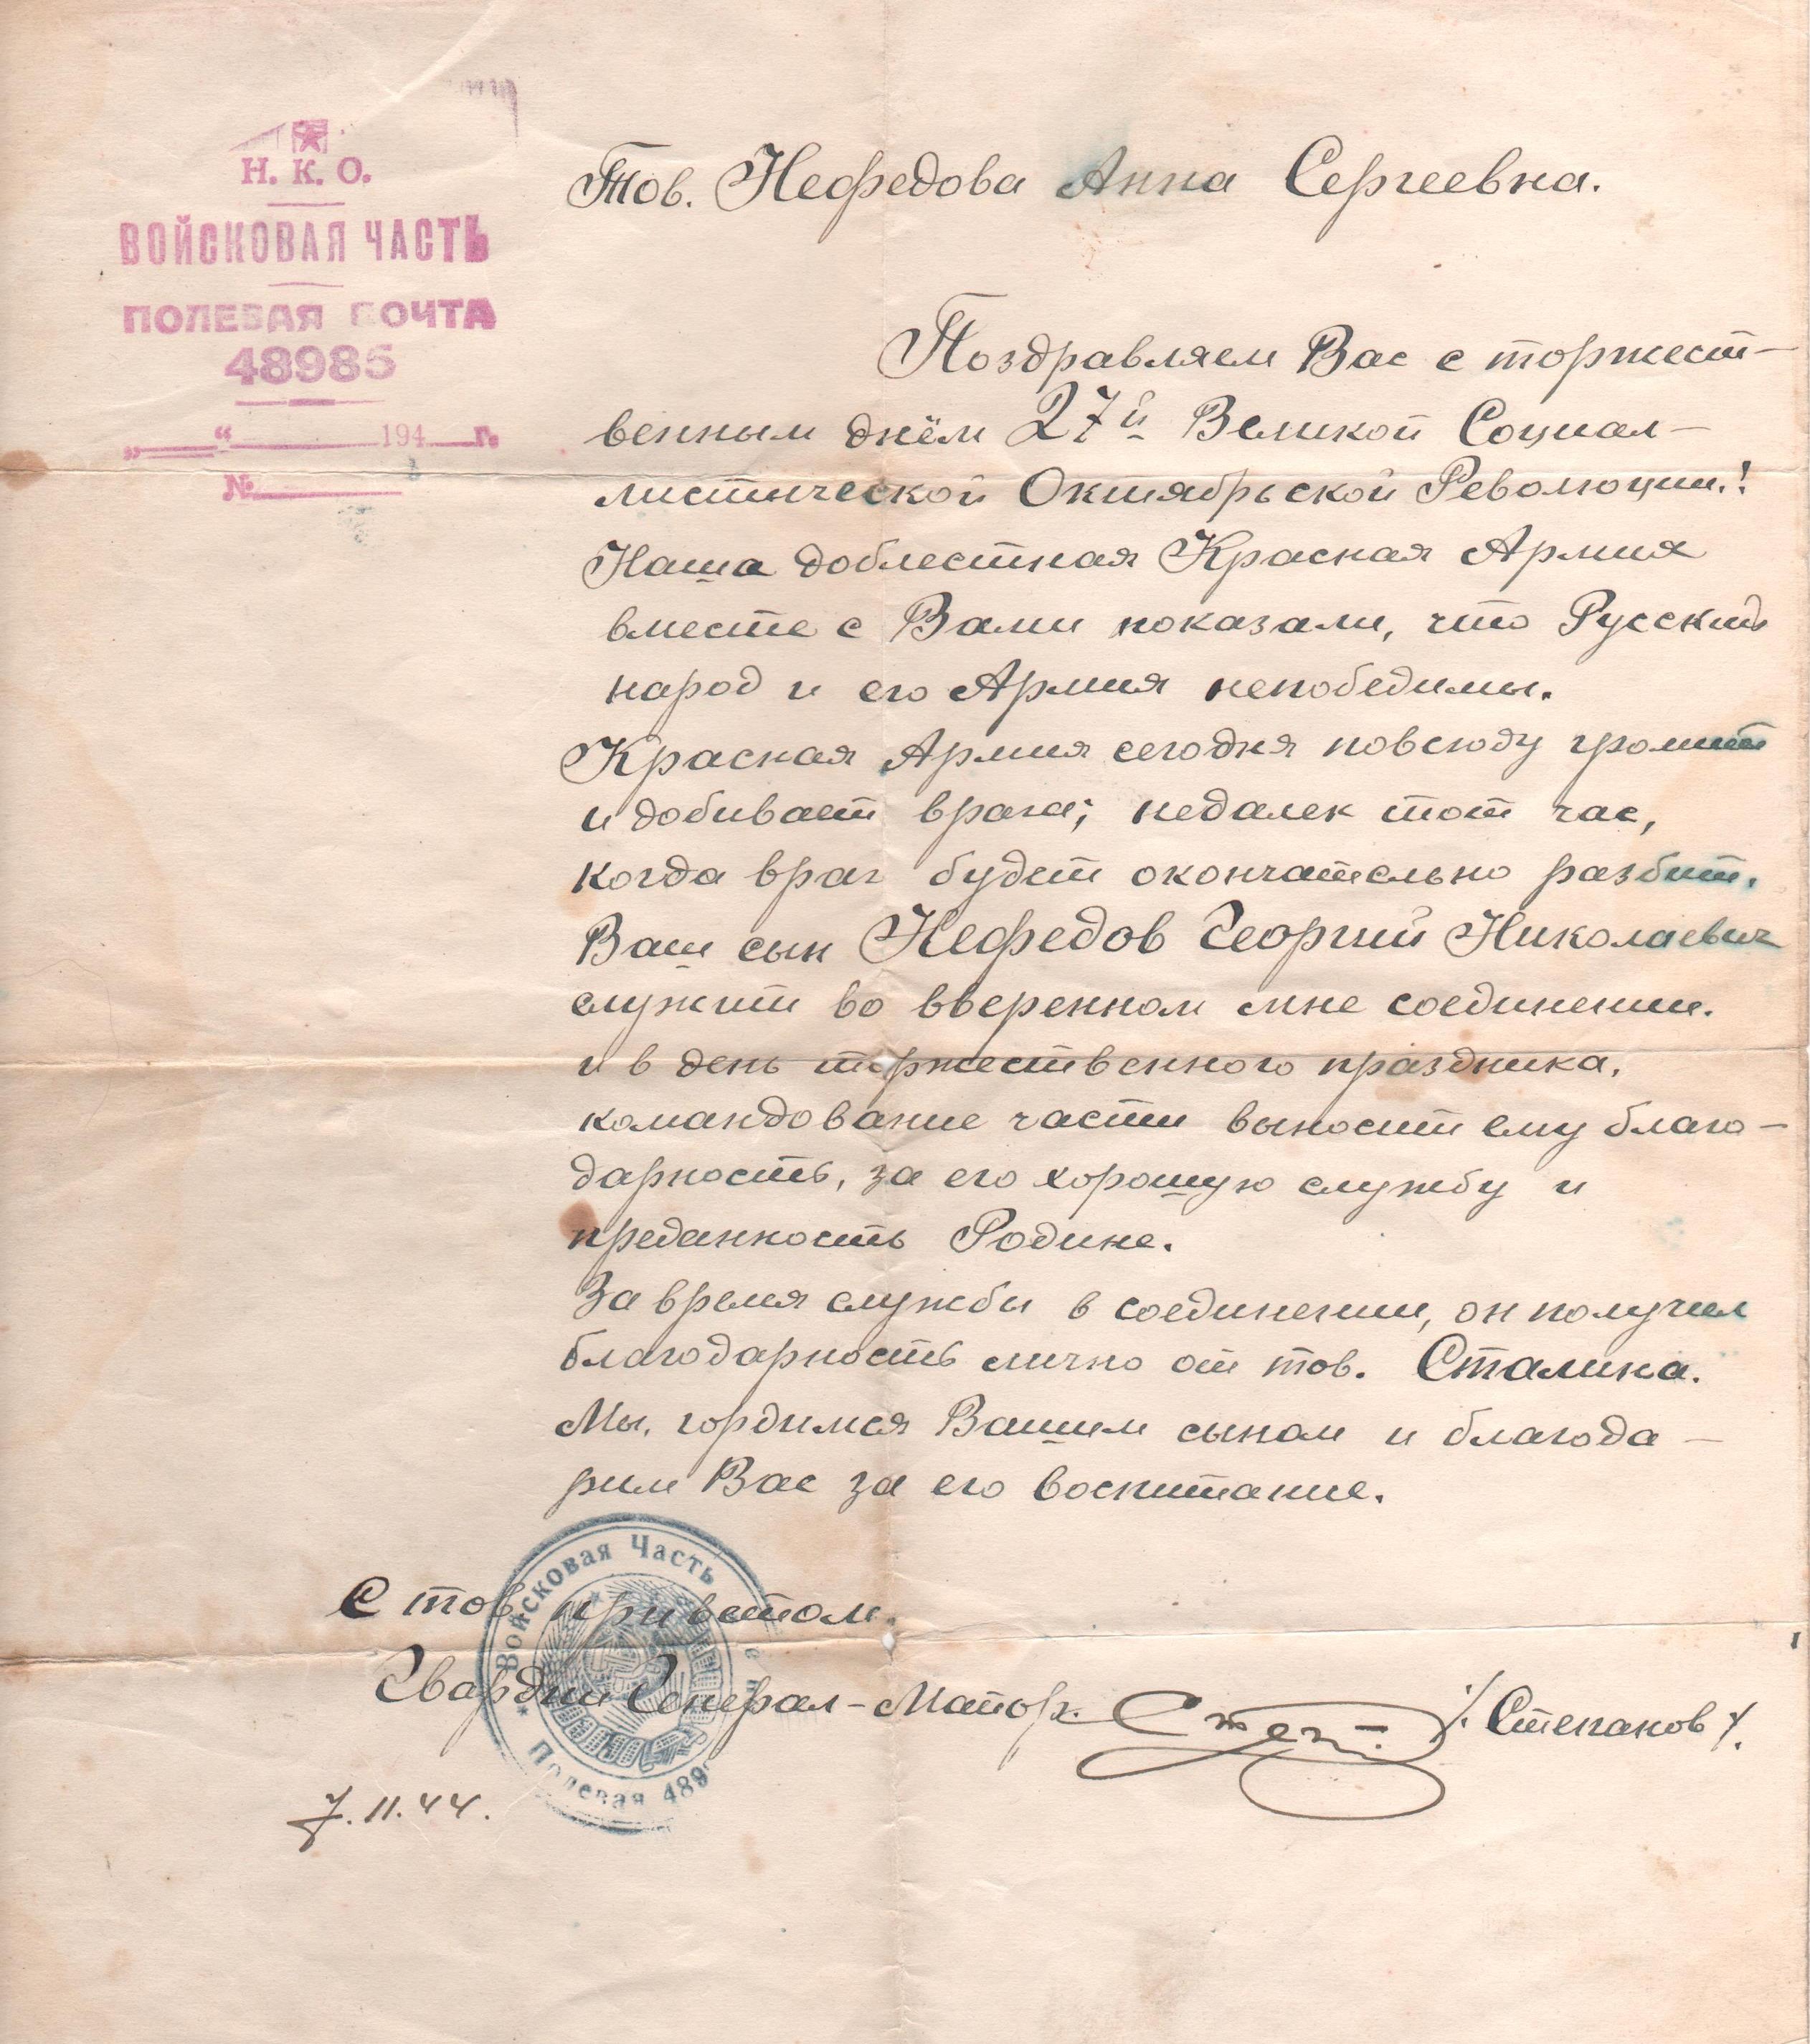 Н. К. О.
ВОЙСКОВАЯ ЧАСТЬ
ПОЛЕВАЯ ПОЧТА
48985
„ “ 194 г.
№
Тов. Нефедова Анна Сергеевна.
Поздравляем Вас с торжест-
венным днём 27й Великой Социал-
листической Октябрьской Революции.!
Наша доблестная Красная Армия
вместе с Вами показали, что Русский
народ и его Армия непобедимы.
Красная Армия сегодня повсюду громит
и добивает врага; недалек тот час,
когда враг будет окончательно разбит.
Ваш сын Нефедов Георгий Николаевич
служит во вверенном мне соединении.
и в день торжественного праздника,
командование части выносит ему благо-
дарность, за его хорошую службу и
преданность Родине.
За время службы в соединении, он получил
благодарность лично от тов. Сталина.
Мы, гордимся Вашим сыном и благода-
рим Вас за его воспитание.
С тов. приветом.
Гвардии Генерал-Майор. Степ. /. Степанов /.
7.11.44.
Войсковая Часть
Полевая 489